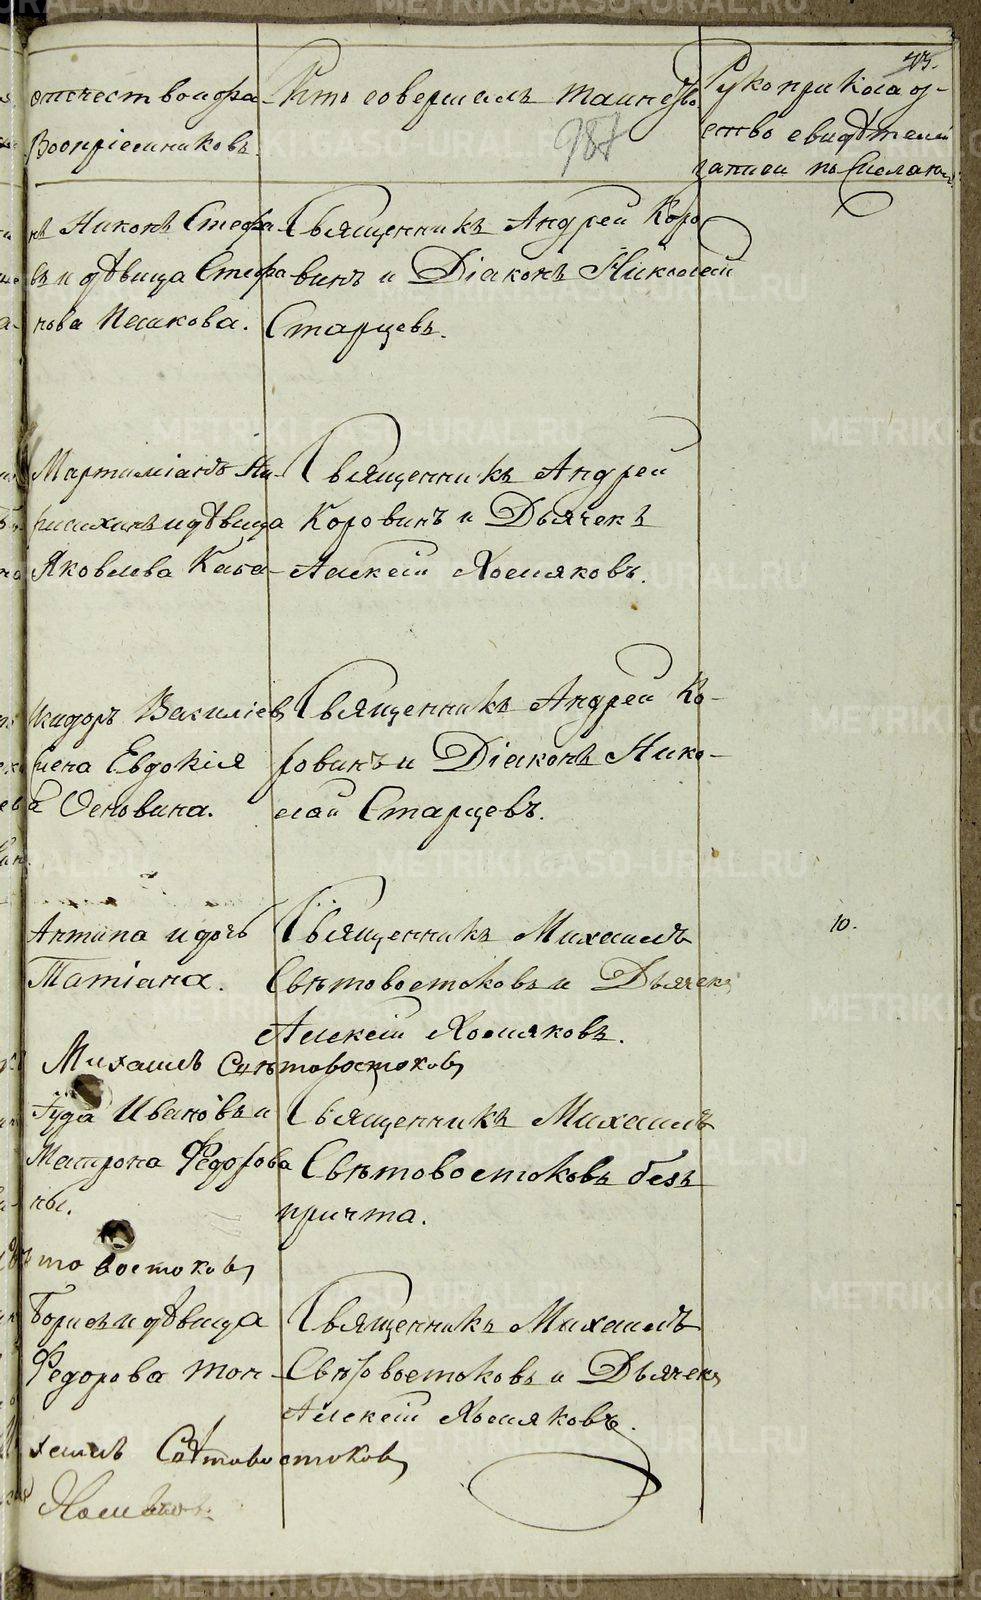 43.
отчество и фа-
Воспріемниковъ.
Кто совершалъ таинство
987
Рукоприклад-
ство свидѣтелей
записи по желанію
нъ Никонъ Стефа
въ и дѣвица Стефа
нова Пешкова.
Священникъ Андрей Коро
винъ и Діаконъ Николай
Старцевъ.
Мартиміанъ Ки-
и дѣвица
Яковлева Каба-
Священникъ Андрей
Коровинъ и Дьячекъ
Алексій Хомяковъ.
Исидоръ Василіев
Евдокія
Основина.
Священникъ Андрей Ко-
ровинъ и Діаконъ Нико-
лай Старцевъ.
Антипа и дочь
Татіана.
Священникъ Михаилъ
Свѣтовостоковъ и Дьячекъ
Алексій Хомяковъ.
10.
Михаилъ Свѣтовостоковъ
Іуда Ивановъ и
Матрона Федорова
ны.
Священникъ Михаилъ
Свѣтовостоковъ безъ
причта.
товостоковъ
Борисъ и дѣвица
Федорова Точ-
Священникъ Михаилъ
Свѣтовостоковъ и Дьячекъ
Алексій Хомяковъ.
хаилъ Свѣтовостоковъ
Хомяковъ.
METRIKI.GASO-URAL.RU